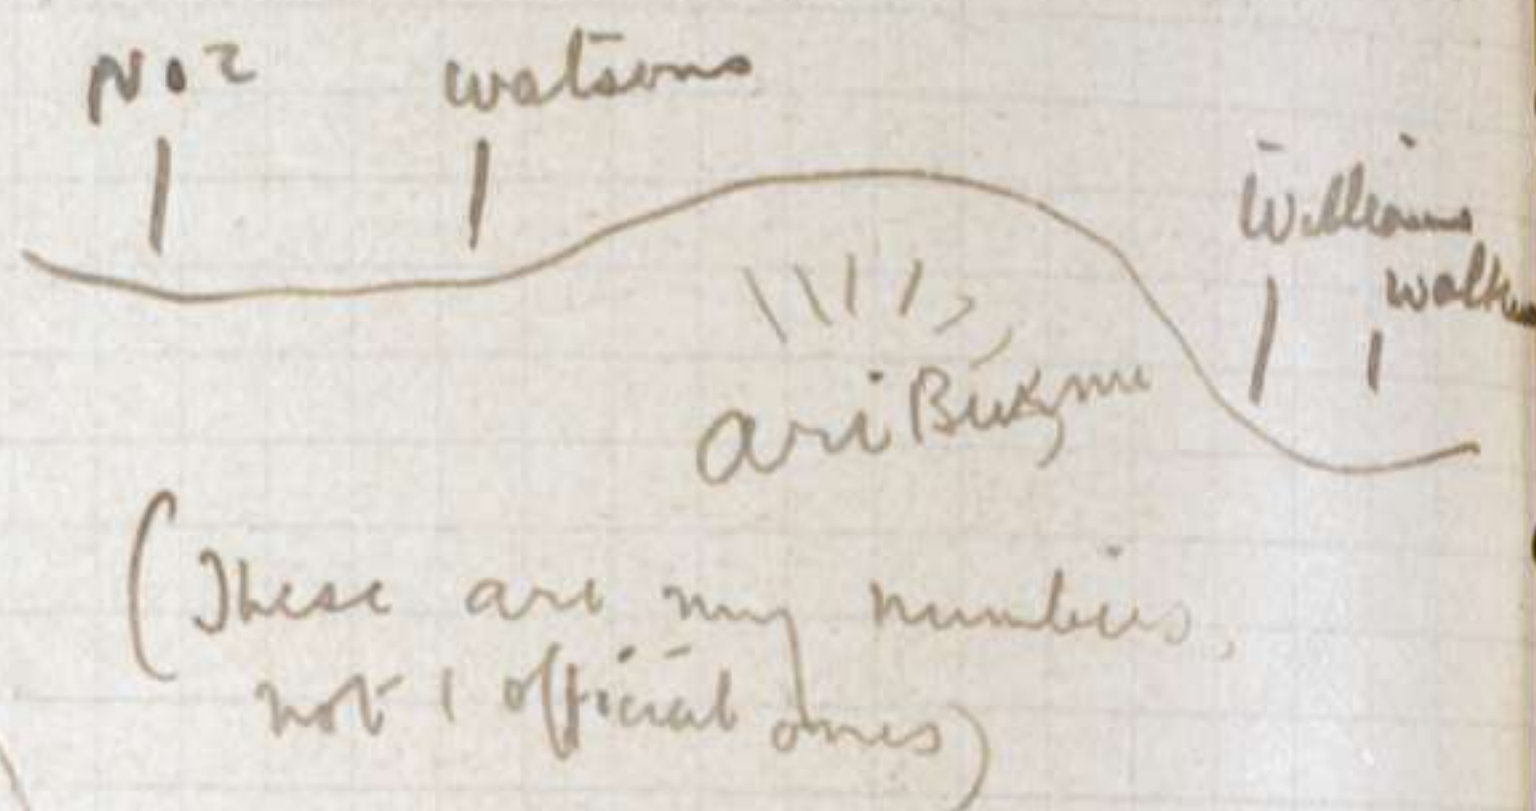 No 2 Watsons
Williams
Ari Burnu
(These are my numbers,
not / official ones)